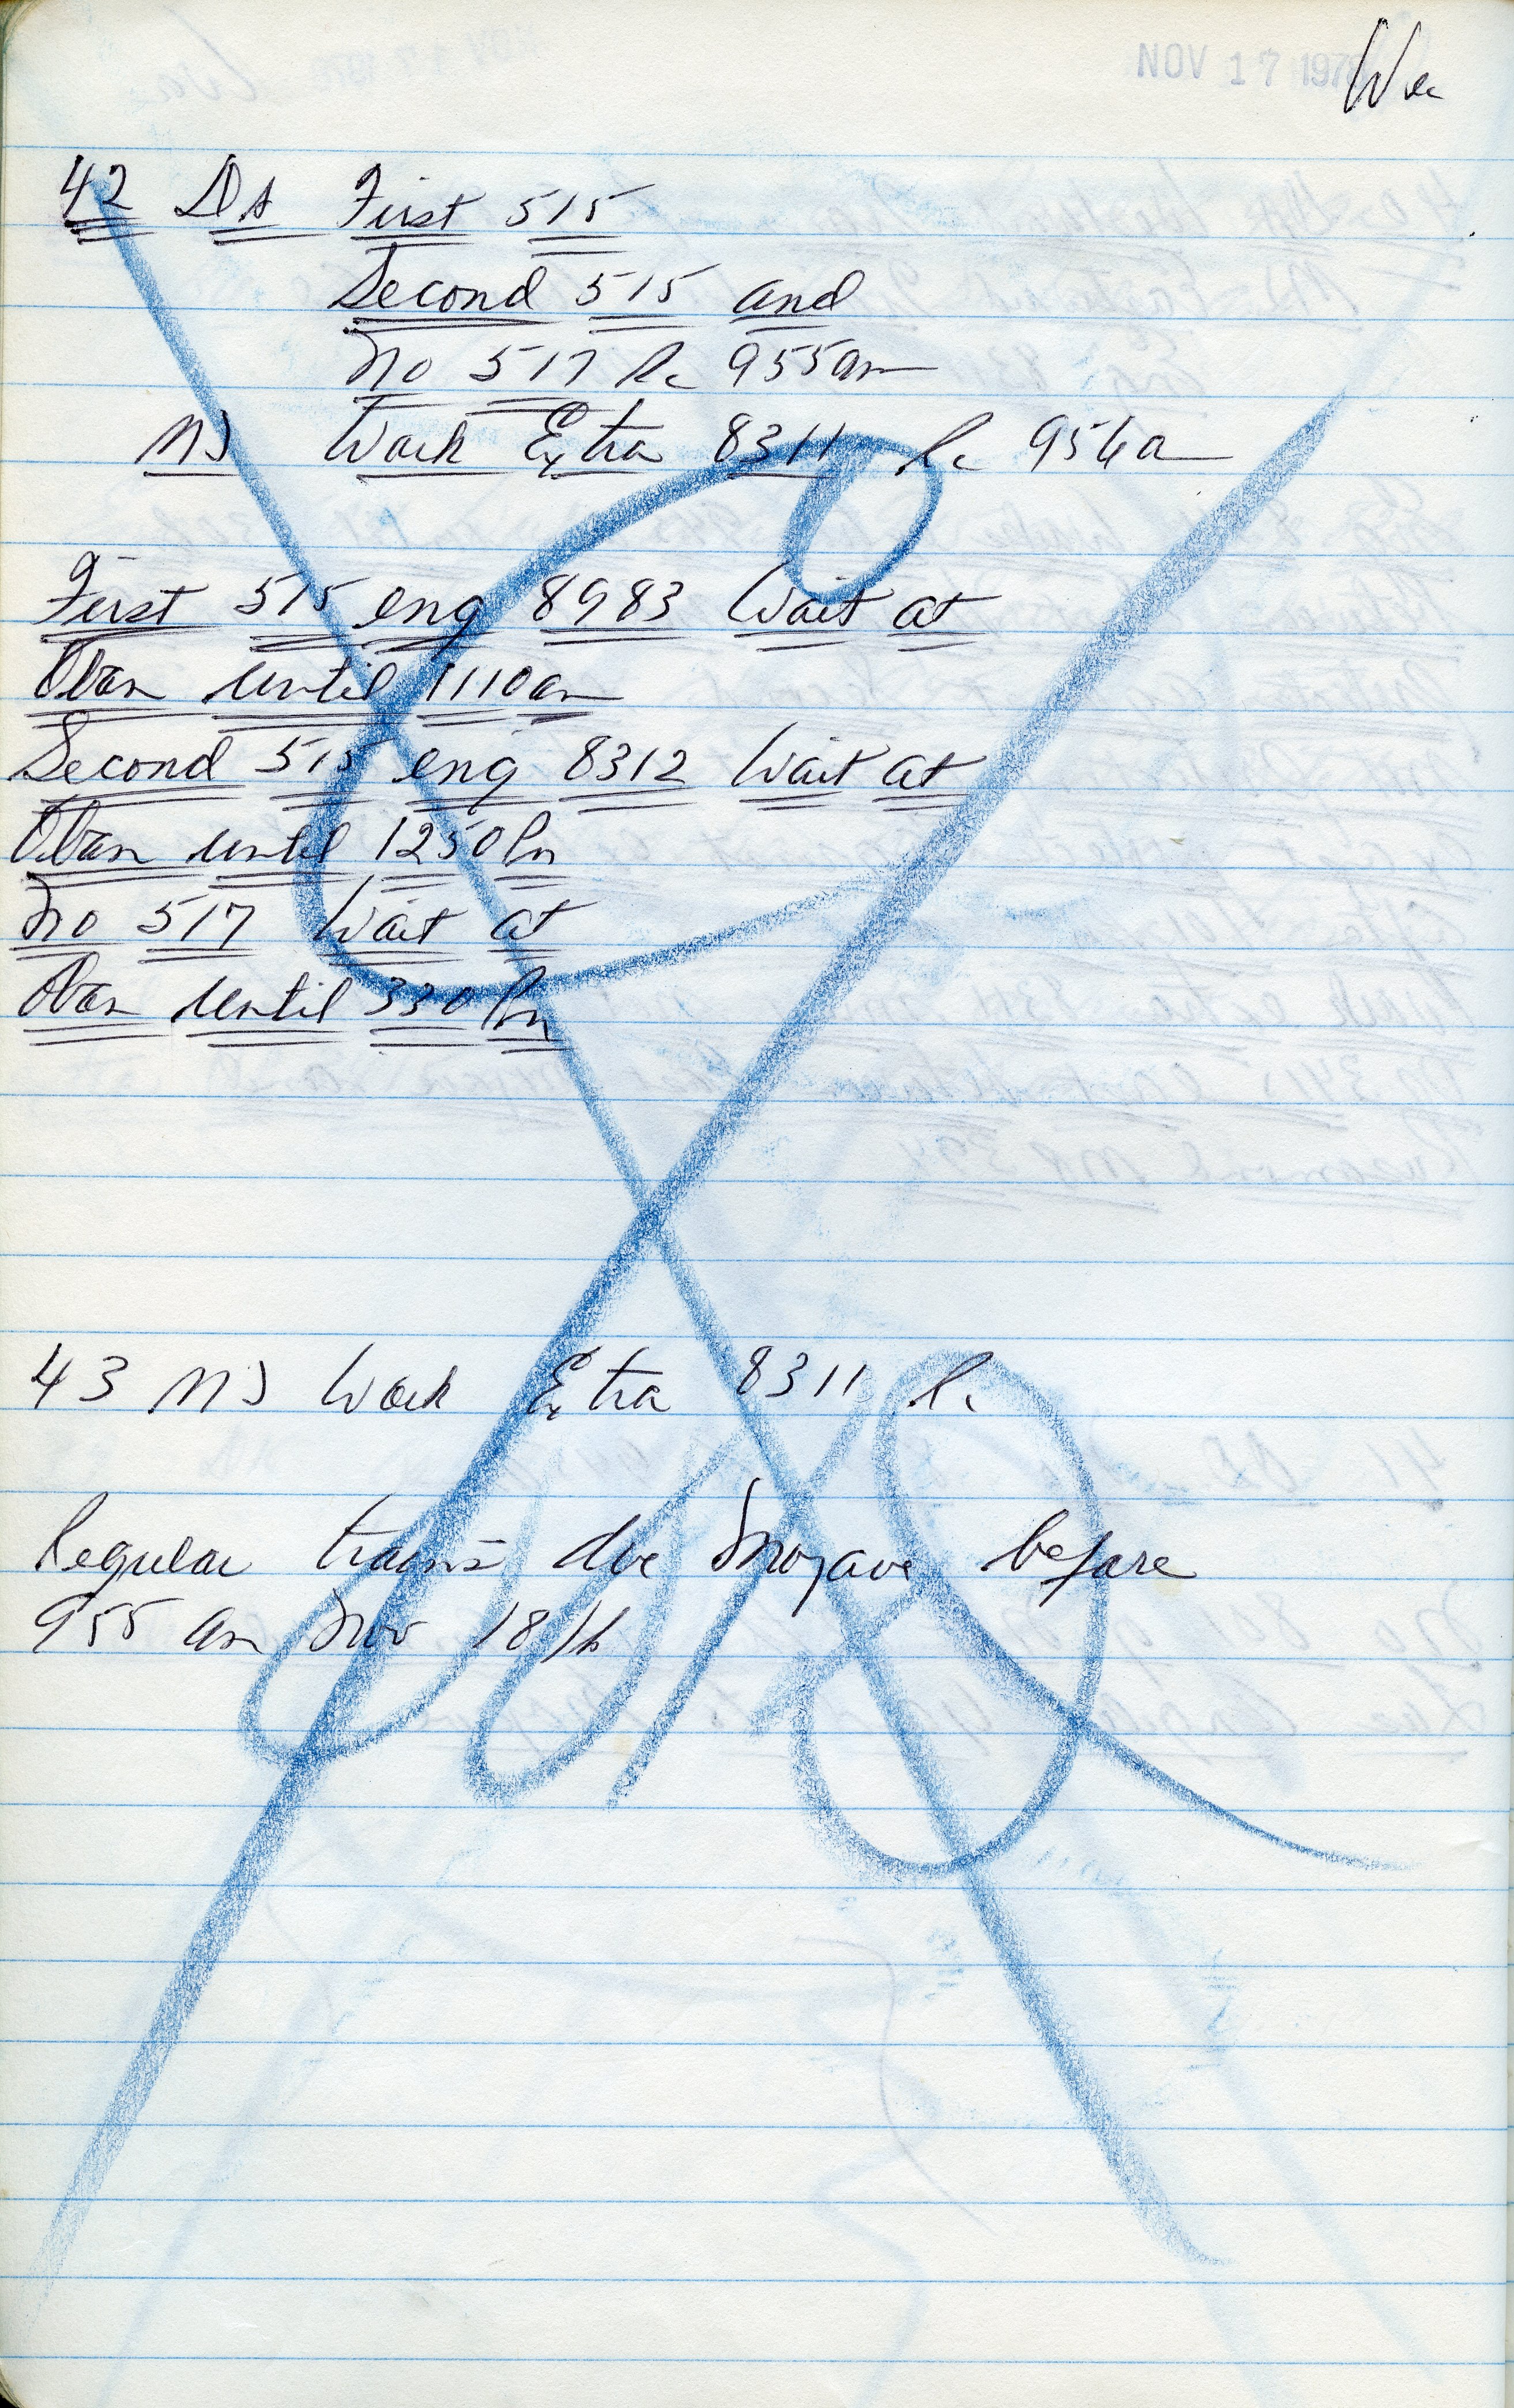 NOV 17 197
42 DS First 515
Second 515 and
No 517 Rc 955am
MJ Work Extra 8311 Rc 956a
First 515 eng 8983 Wait at
Oban until 1110am
Second 515 eng 8312 Wait at
Oban until 1250Pm
No 517 Wait at
Oban until 330Pm
43 MJ Work Extra 8311 Rc
Regular trains due Mojave before
955 am Nov 18th